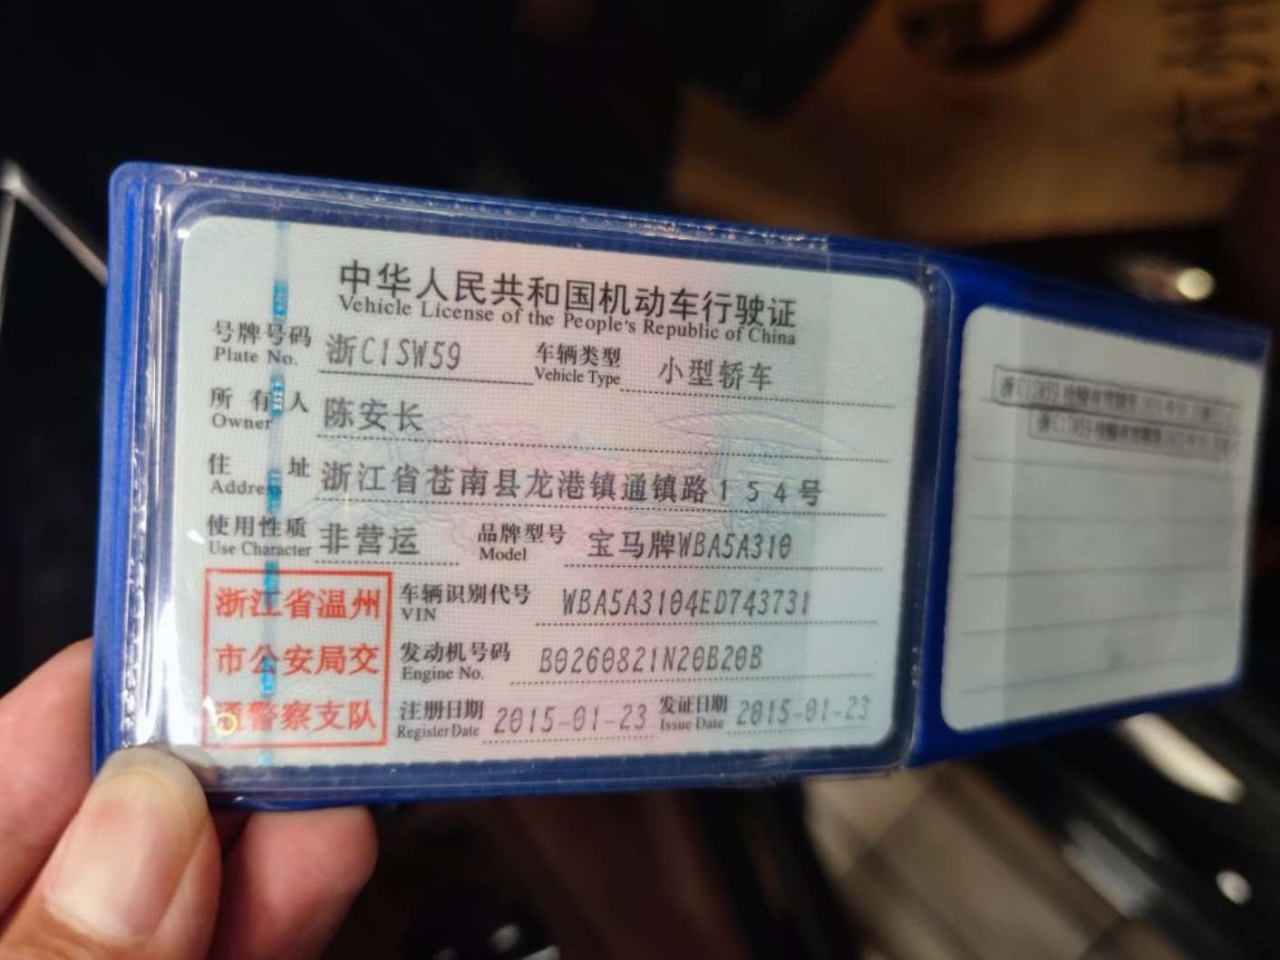 中华人民共和国机动车行驶证
Vehicle License of the People's Republic of China
号牌号码 浙C1SW59 车辆类型 小型轿车
Plate No. Vehicle Type
所有人 陈安长
Owner
住址 浙江省苍南县龙港镇通镇路154号
Address
使用性质 非营运 品牌型号 宝马牌WBA5A310
Use Character Model
浙江省温州
市公安局交
通警察支队
车辆识别代号 WBA5A3104ED743731
VIN
发动机号码 B0260821N20B20B
Engine No.
注册日期 2015-01-23 发证日期 2015-01-23
Register Date Issue Date